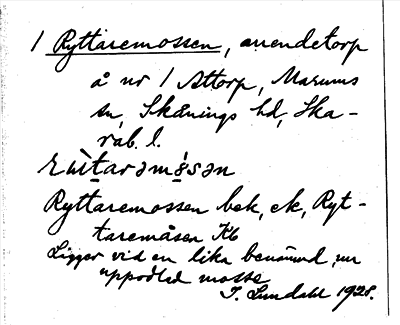 1 Ryttaremossen, arrendetorp
å nr 1 Attorp, Marums
sn, Skånings hd, Ska-
rab. l.
Ryttaremossen bek, ek, Ryt-
taremåsen Kb
Ligger vid en lika benämnd, nu
uppodlad mosse
I. Lundahl 1928.